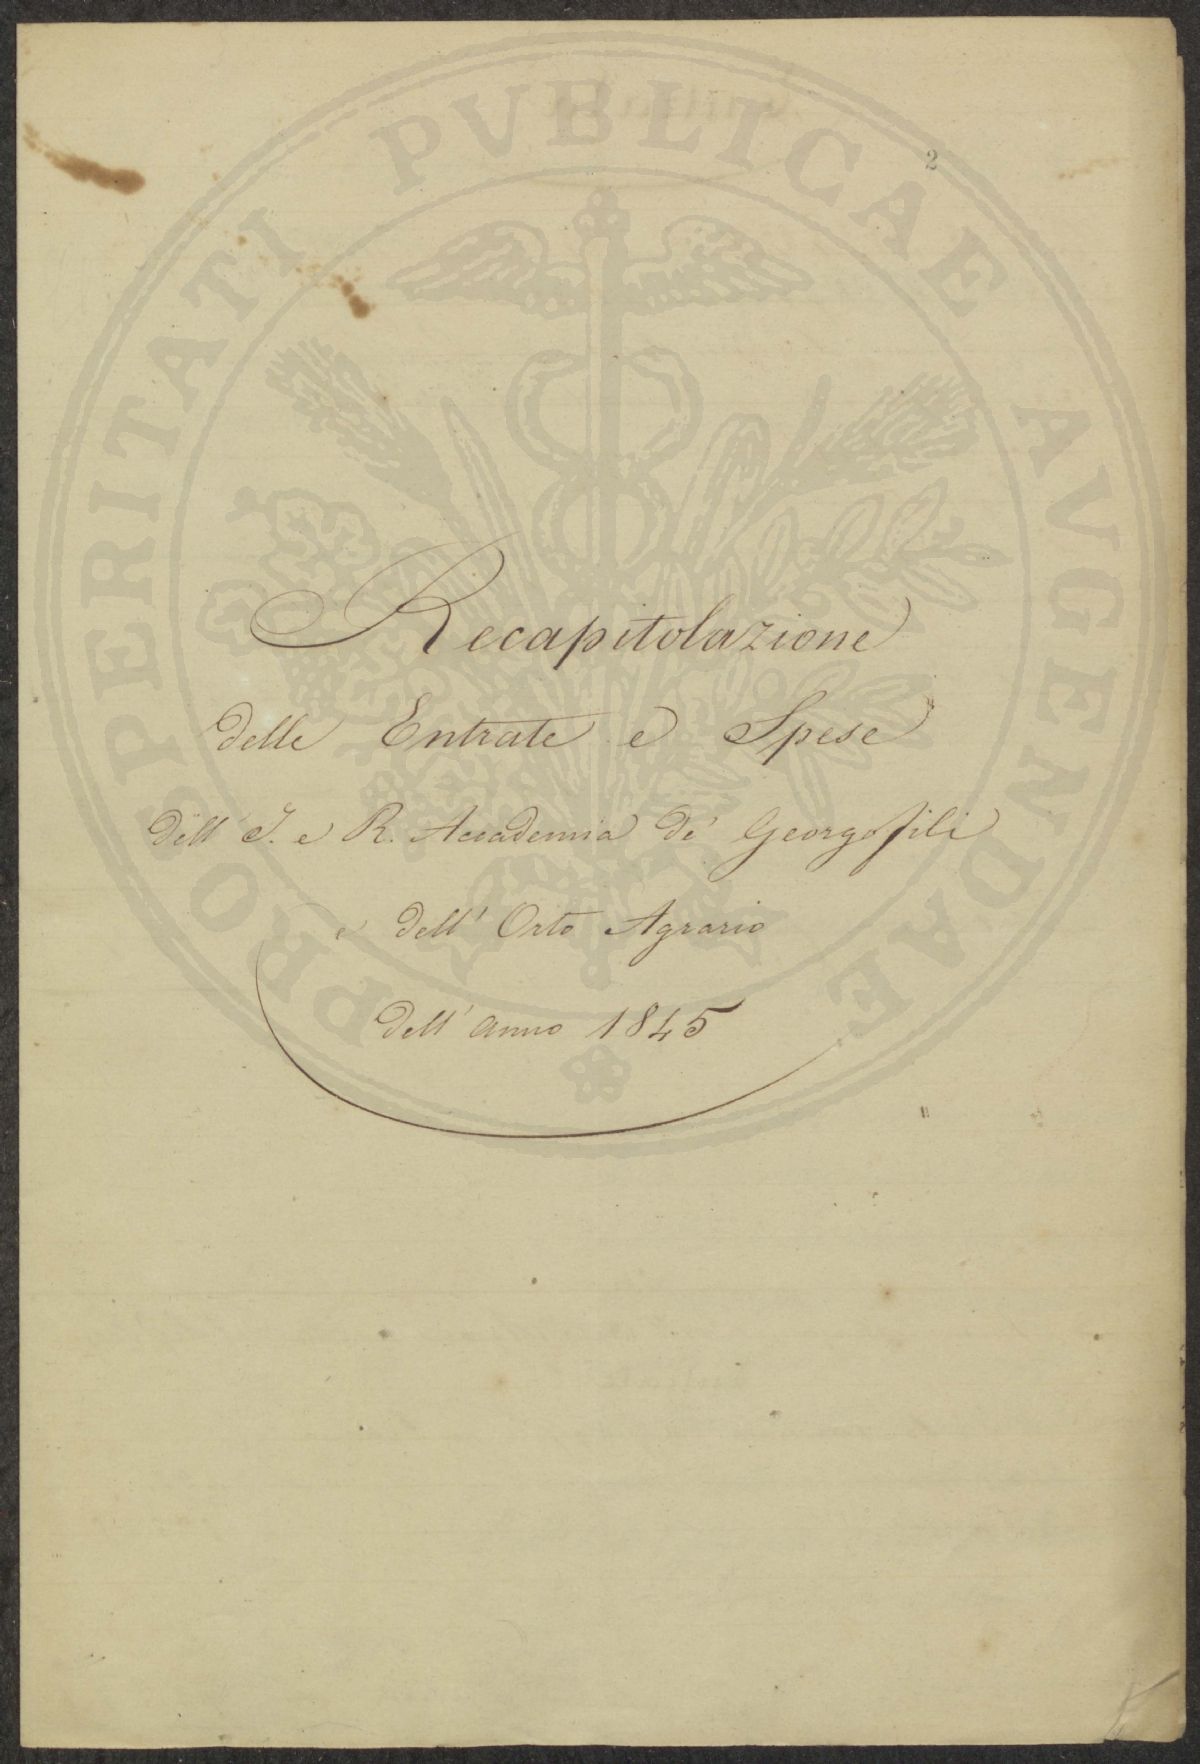 PROSPERITATI PVBLICAE AVGENDAE
2
Recapitolazione
delle Entrate e Spese
dell' I. e R. Accademia de' Georgofili
e dell' Orto Agrario
dell' anno 1845